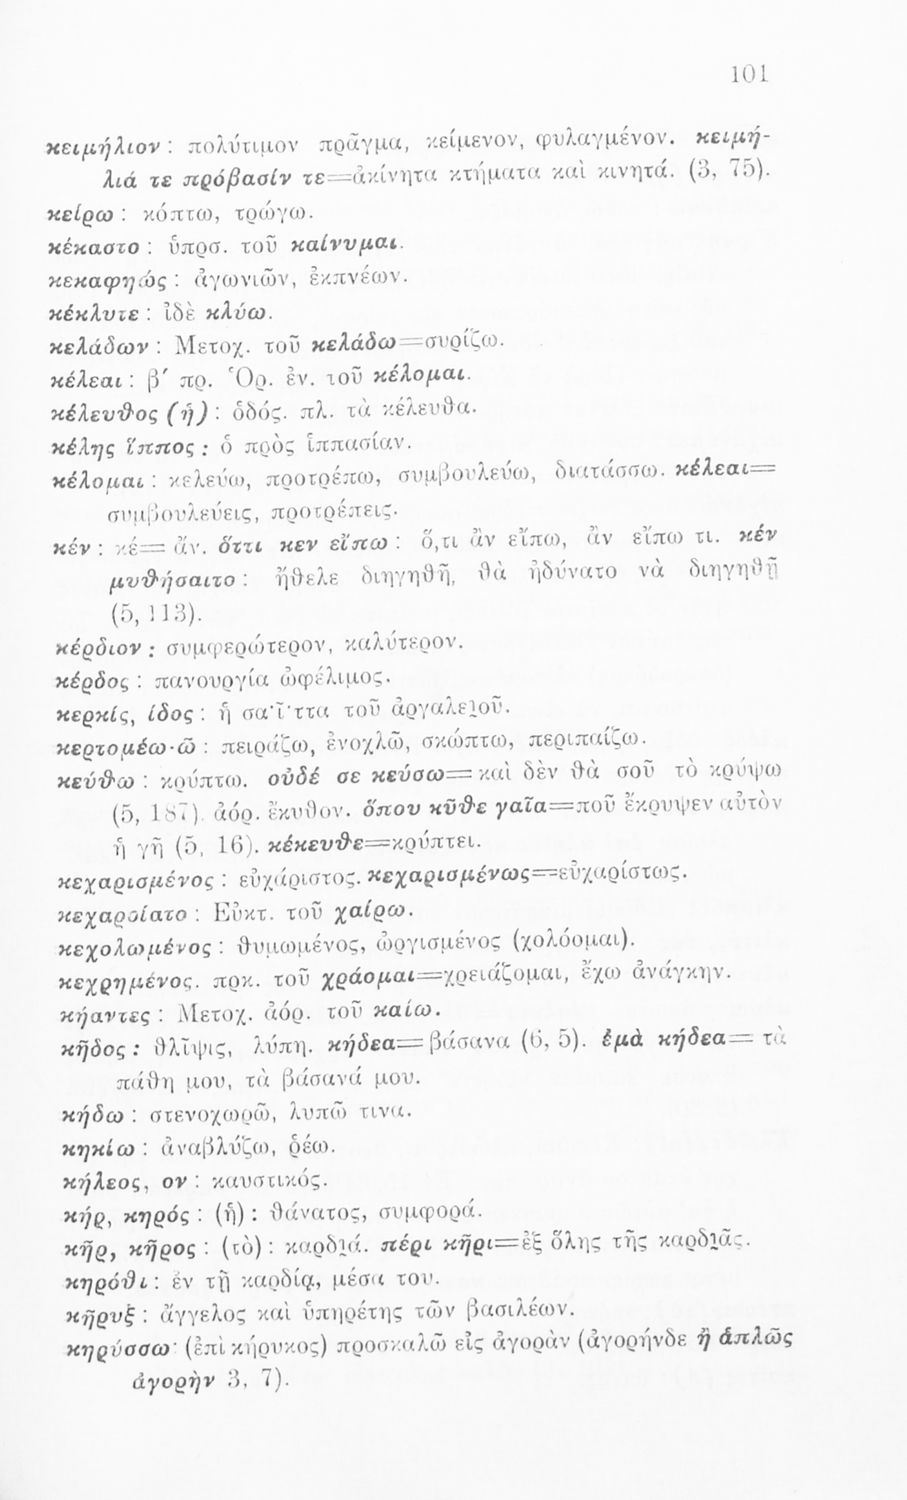 101
κειμήλιον : πολύτιμον πρᾶγμα, κείμενον, φυλαγμένον. κειμή-
λιά τε πρόβασίν τε=ἀκίνητα κτήματα καὶ κινητά. (3, 75).
κείρω : κόπτω, τρώγω.
κέκαστο : ὑπρσ. τοῦ καίνυμαι.
κεκαφηώς : ἀγωνιῶν, ἐκπνέων.
κέκλυτε : ἰδὲ κλύω.
κελάδων : Μετοχ. τοῦ κελάδω=συρίζω.
κέλεαι : β′ πρ. Ὁρ. ἐν. τοῦ κέλομαι.
κέλευθος (ἡ) : ὁδός. πλ. τὰ κέλευθα.
κέλης ἵππος : ὁ πρὸς ἱππασίαν.
κέλομαι : κελεύω, προτρέπω, συμβουλεύω, διατάσσω. κέλεαι=
συμβουλεύεις, προτρέπεις.
κέν : κέ= ἄν. ὅττι κεν εἴπω : ὅ,τι ἂν εἴπω, ἂν εἴπω τι. κέν
μυθήσαιτο : ἤθελε διηγηθῆ, θὰ ἠδύνατο νὰ διηγηθῇ
(5, 113).
κέρδιον : συμφερώτερον, καλύτερον.
κέρδος : πανουργία ὠφέλιμος.
κερκίς, ίδος : ἡ σαΐττα τοῦ ἀργαλειοῦ.
κερτομέω-ῶ : πειράζω, ἐνοχλῶ, σκώπτω, περιπαίζω.
κεύθω : κρύπτω. οὐδέ σε κεύσω= καὶ δὲν θὰ σοῦ τὸ κρύψω
(5, 187). ἀόρ. ἔκυθον. ὅπου κῦθε γαῖα=ποῦ ἔκρυψεν αὐτὸν
ἡ γῆ (5, 16). κέκευθε=κρύπτει.
κεχαρισμένος : εὐχάριστος. κεχαρισμένως=εὐχαρίστως.
κεχαροίατο : Εὐκτ. τοῦ χαίρω.
κεχολωμένος : θυμωμένος, ὠργισμένος (χολόομαι).
κεχρημένος. πρκ. τοῦ χράομαι=χρειάζομαι, ἔχω ἀνάγκην.
κήαντες : Μετοχ. ἀόρ. τοῦ καίω.
κῆδος : θλῖψις, λύπη. κήδεα= βάσανα (6, 5). ἐμὰ κήδεα= τὰ
πάθη μου, τὰ βάσανά μου.
κήδω : στενοχωρῶ, λυπῶ τινα.
κηκίω : ἀναβλύζω, ῥέω.
κήλεος, ον : καυστικός.
κήρ, κηρός : (ἡ) : θάνατος, συμφορά.
κῆρ, κῆρος : (τὸ) : καρδιά. πέρι κῆρι=ἐξ ὅλης τῆς καρδιᾶς.
κηρόθι : ἐν τῇ καρδίᾳ, μέσα του.
κῆρυξ : ἄγγελος καὶ ὑπηρέτης τῶν βασιλέων.
κηρύσσω· (ἐπὶ κήρυκος) προσκαλῶ εἰς ἀγορὰν (ἀγορήνδε ἢ ἁπλῶς
ἀγορὴν 3, 7).